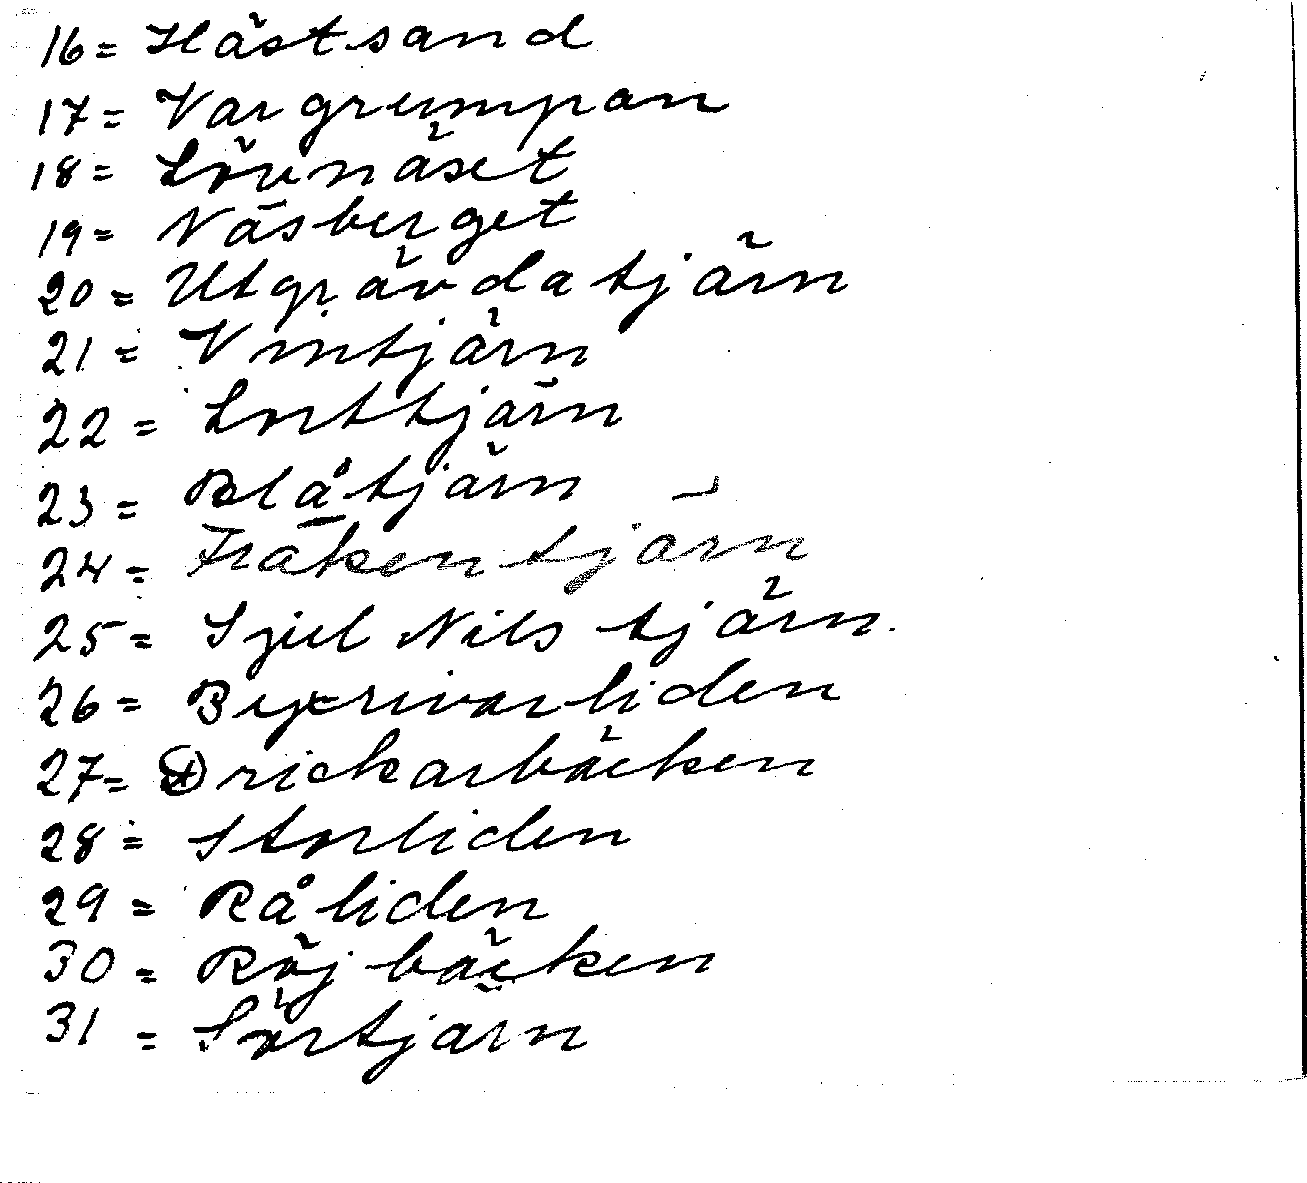 16 = Hästsand
17 = Vargrumpan
18 = Lövnäset
19 = Näsberget
20 = Utgrävda tjärn
21 = Vintjärn
22 = Lorttjärn
23 = Blåtjärn
24 = Fräkentjärn
25 = Spel Nils tjärn.
26 = Byxrivarliden
27 = Drickarbäcken
28 = Storliden
29 = Råliden
30 = Röjbäcken
31 = Sörtjärn